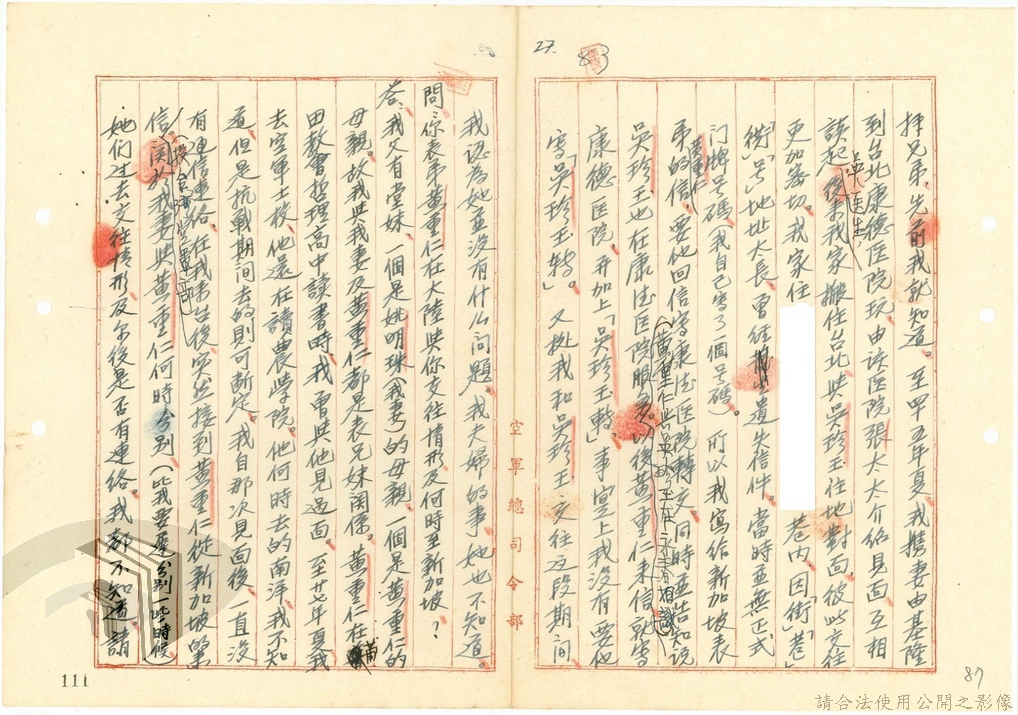 27.
83
拝兄弟,先前我就知道。至四五年夏,我携妻由基隆
到台北康德医院玩,由該医院張太太介紹見面,互相
談起(吳医生),後來我家搬住台北與吳珍玉住地對面,彼此交往
更加密切。我家住 巷内,因「街」「巷」
「衖」「号」地址太長,曾経遺失信件。當時並無正式
門牌号碼(我自己寫了一個号碼)。所以我寫給新加坡表
弟黄重仁的信,要他回信寫康德医院轉交,同時並告知説
吳珍玉也在康德医院服务(黄重仁與吳珍玉在永春相識)。以後黄重仁来信就寫
康德医院。并加上「吳珍玉轉」,事寔上我没有要他
寫「吳珍玉轉」。又批我和吳珍玉交往这段期间
空軍總司令部
我認為她並没有什么问題。我夫婦的事,她也不知道。
問:你表弟黄重仁在大陸與你交往情形及何時至新加坡?
答:我父有堂妹,一個是姚明珠(我妻)的母親,一個是黄重仁的
母親。故我與我妻及黄重仁都是表兄妹関係。黄重仁在莆
田教會哲理高中读書時,我曾與他見过面。至廿七年夏我
去空軍士校,他還在讀農學院。他何時去的南洋,我不知
道,但是抗戰期间去的則可断定。我自那次見面後,一直没
有通信連絡。在我来台後,突然接到黄重仁從新加坡來
信。関於我妻與黄重仁何時分别,(此我妻應分别一些時候)
她们过去交往情形,及尔後是否有連络,我都不知道,請
111
87
請合法使用公開之影像